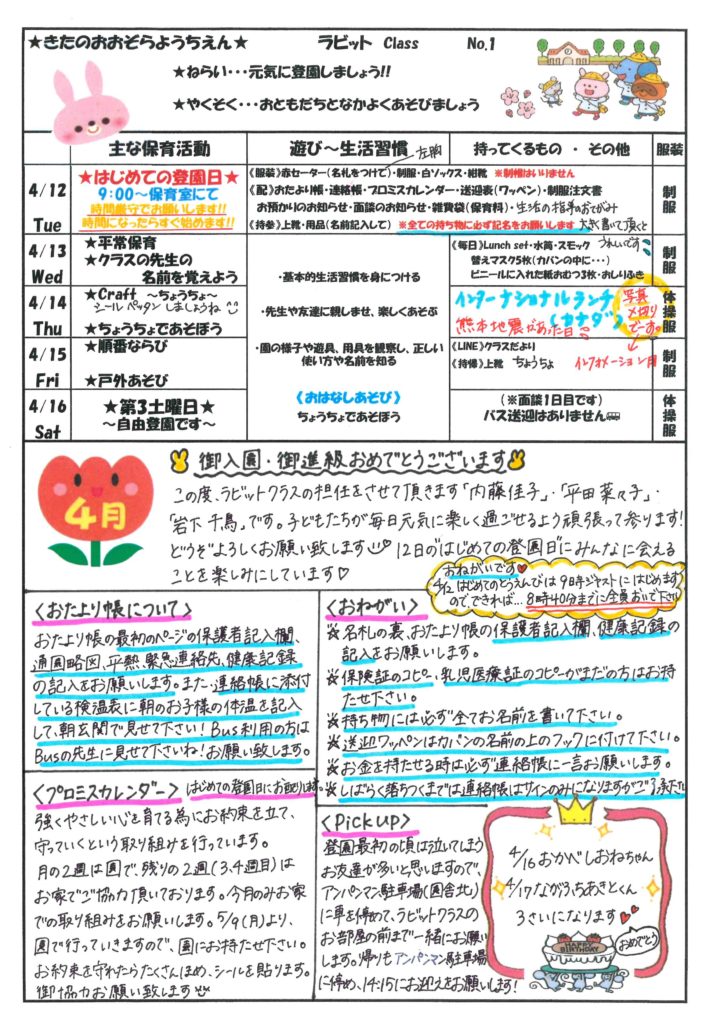 ★きたのおおぞらようちえん★　ラビット Class　No.1
★ねらい・・・元気に登園しましょう!!
★やくそく・・・おともだちとなかよくあそびましょう
主な保育活動　遊び～生活習慣　持ってくるもの ・ その他　服装
左胸
4/12 Tue
★はじめての登園日★
9:00～保育室にて
時間厳守でお願いします!!
時間になったらすぐ始めます!!
《服装》赤セーター(名札をつけて)・制服・白ソックス・紺靴 ※制帽はいりません
《配》おたより帳・連絡帳・プロミスカレンダー・送迎表(ワッペン)・制服注文書
お預かりのお知らせ・面談のお知らせ・雑費袋(保育料)・生活の指導のてがみ
《持参》上靴・用品(名前記入して) ※全ての持ち物に必ず記名をお願いします 大きく書いて頂くと
うれしいです
制服
4/13 Wed
★平常保育
★クラスの先生の
名前を覚えよう
・基本的生活習慣を身につける
《毎日》Lunch set・水筒・スモック
替えマスク5枚(カバンの中に・・・)
ビニールに入れた紙おむつ3枚・おしりふき
制服
4/14 Thu
★Craft ～ちょうちょ～
シールペッタンしましょうね
★ちょうちょであそぼう
・先生や友達に親しませ、楽しくあそぶ
インターナショナルランチ
(カナダ)
熊本地震があった日
写真
〆切り
です。
体操服
4/15 Fri
★順番ならび
★戸外あそび
・園の様子や遊具、用具を観察し、正しい
使い方や名前を知る
《LINE》クラスだより
《持帰》上靴 ちょうちょ インフォメーション
制服
4/16 Sat
★第3土曜日★
～自由登園です～
《おはなしあそび》
ちょうちょであそぼう
(※面談1日目です)
バス送迎はありません
体操服
4月
御入園・御進級おめでとうございます
この度、ラビットクラスの担任をさせて頂きます「内藤佳子」・「平田菜々子」・
「岩下千鳥」です。子どもたちが毎日元気に楽しく過ごせるよう頑張って参ります!
どうぞよろしくお願い致します 12日の"はじめての登園日"にみんなに会える
ことを楽しみにしています♡
おねがいです♥
4/12 はじめてのとうえんびは9時ジャストにはじめます
のでできれば…8時40分までに全員おいで下さい
〈おたより帳について〉
おたより帳の最初のページの保護者記入欄、
通園略図、平熱、緊急連絡先、健康記録
の記入をお願いします。また、連絡帳に添付
している検温表に朝のお子様の体温を記入
して、朝玄関で見せて下さい！Bus利用の方は
Busの先生に見せて下さいね！お願い致します。
〈おねがい〉
☆名札の裏、おたより帳の保護者記入欄、健康記録の
記入をお願いします。
☆保険証のコピー、乳児医療証のコピーがまだの方はお持
たせ下さい。
☆持ち物には必ず全てお名前を書いて下さい。
☆送迎ワッペンはカバンの名前の上のフックに付けて下さい。
☆お金を持たせる時は必ず連絡帳に一言お願いします。
☆しばらく落ちつくまでは連絡帳はサインのみになりますがご了承下さい
〈プロミスカレンダー〉はじめての登園日にお配りします。
強くやさしい心を育てる為にお約束を立て、
守っていくという取り組みを行っています。
月の2週は園で、残りの2週(3,4週目)は
お家でご協力頂いております。今月のみお家
での取り組みをお願いします。5/9(月)より、
園で行っていきますので、園にお持たせ下さい。
お約束を守れたらたくさんほめ、シールを貼ります。
御協力お願い致します
〈Pick up〉
登園最初の頃は泣いてしまう
お友達が多いと思いますので、
アンパンマン駐車場(園舎北)
に車を停めて、ラビットクラスの
お部屋の前まで一緒にお願い
します。帰りもアンパンマン駐車場
に停め、14:15にお迎えをお願いします!
4/16 おかべしおねちゃん
4/17 ながふちあきとくん
3さいになります♥♥
おめでとう
HAPPY BIRTHDAY